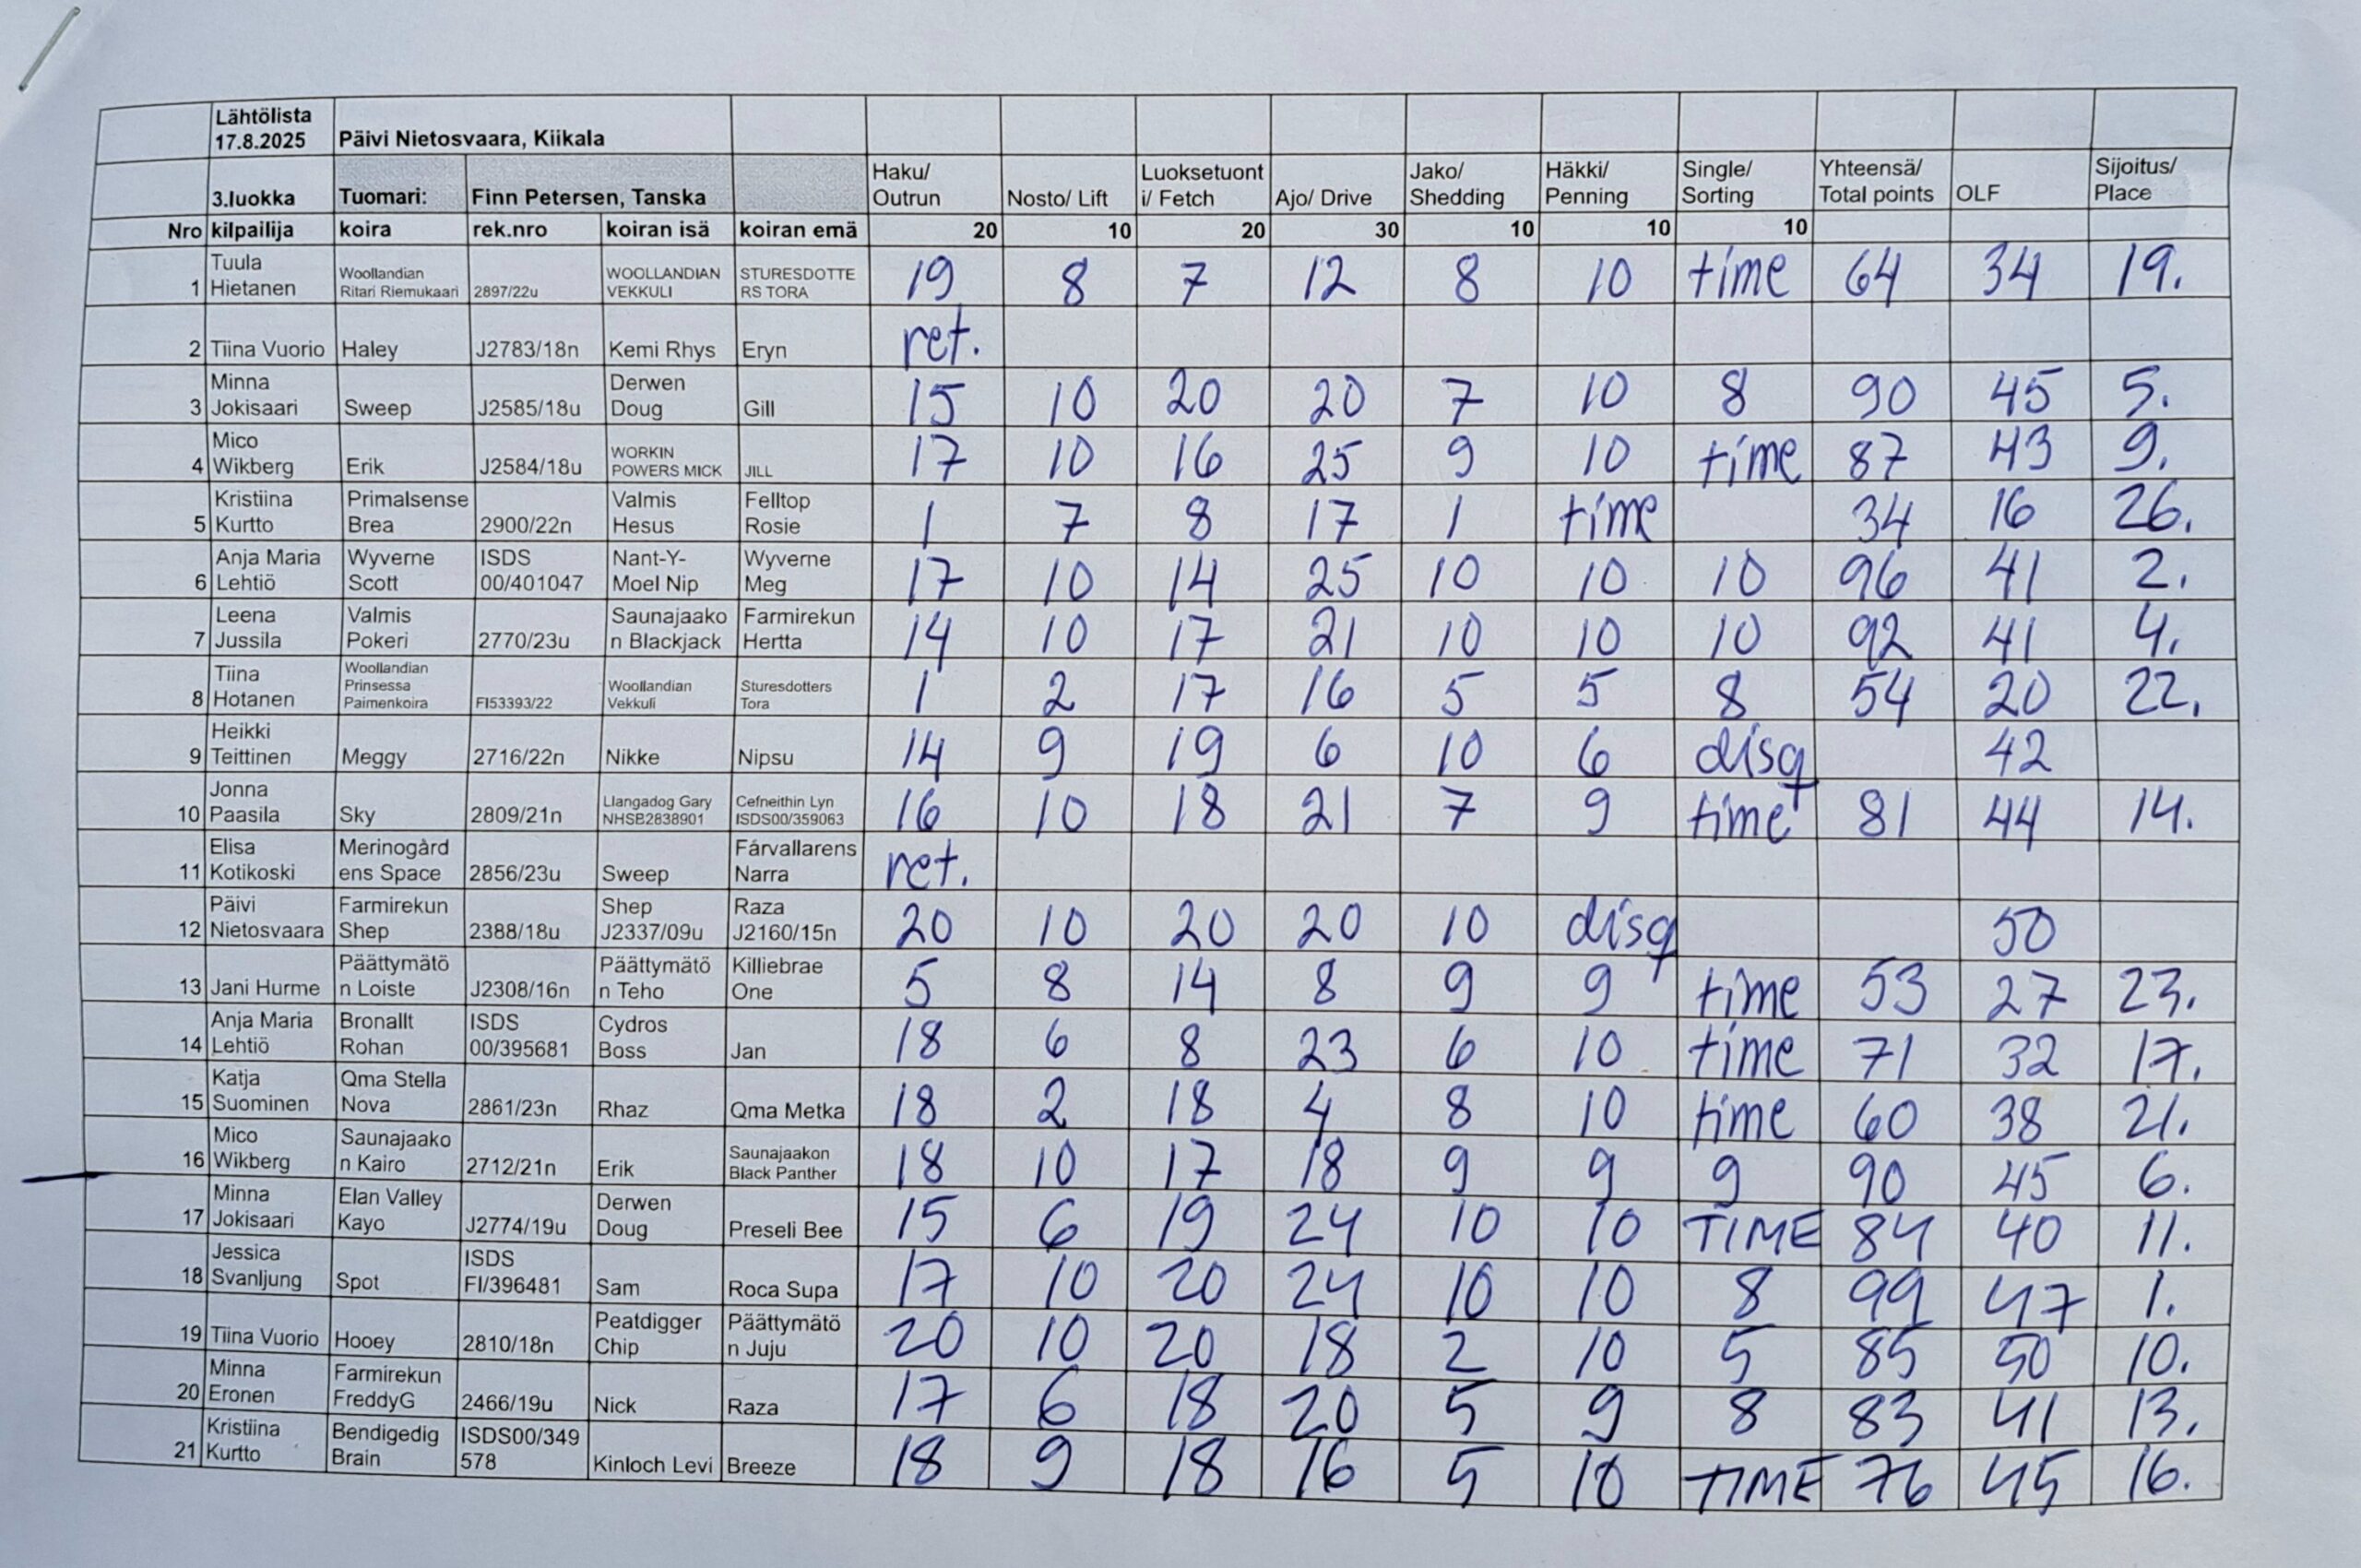 Lähtölista 17.8.2025 Päivi Nietosvaara, Kiikala
3.luokka Tuomari: Finn Petersen, Tanska Haku/ Outrun Nosto/ Lift Luoksetuont i/ Fetch Ajo/ Drive Jako/ Shedding Häkki/ Penning Single/ Sorting Yhteensä/ Total points OLF Sijoitus/ Place
Nro kilpailija koira rek.nro koiran isä koiran emä 20 10 20 30 10 10 10
1 Tuula Hietanen Woollandian Ritari Riemukaari 2897/22u WOOLLANDIAN VEKKULI STURESDOTTE RS TORA 19 8 7 12 8 10 time 64 34 19.
2 Tiina Vuorio Haley J2783/18n Kemi Rhys Eryn ret.
3 Minna Jokisaari Sweep J2585/18u Derwen Doug Gill 15 10 20 20 7 10 8 90 45 5.
4 Mico Wikberg Erik J2584/18u WORKIN POWERS MICK JILL 17 10 16 25 9 10 time 87 43 9.
5 Kristiina Kurtto Primalsense Brea 2900/22n Valmis Hesus Felltop Rosie 1 7 8 17 1 time 34 16 26.
6 Anja Maria Lehtiö Wyverne Scott ISDS 00/401047 Nant-Y- Moel Nip Wyverne Meg 17 10 14 25 10 10 10 96 41 2.
7 Leena Jussila Valmis Pokeri 2770/23u Saunajaako n Blackjack Farmirekun Hertta 14 10 17 21 10 10 10 92 41 4.
8 Tiina Hotanen Woollandian Prinsessa Paimenkoira FI53393/22 Woollandian Vekkuli Sturesdotters Tora 1 2 17 16 5 5 8 54 20 22.
9 Heikki Teittinen Meggy 2716/22n Nikke Nipsu 14 9 19 6 10 6 disq 42
10 Jonna Paasila Sky 2809/21n Llangadog Gary NHSB2838901 Cefneithin Lyn ISDS00/359063 16 10 18 21 7 9 time 81 44 14.
11 Elisa Kotikoski Merinogård ens Space 2856/23u Sweep Fárvallarens Narra ret.
12 Päivi Nietosvaara Farmirekun Shep 2388/18u Shep J2337/09u Raza J2160/15n 20 10 20 20 10 disq 50
13 Jani Hurme Päättymätö n Loiste J2308/16n Päättymätö n Teho Killiebrae One 5 8 14 8 9 9 time 53 27 23.
14 Anja Maria Lehtiö Bronallt Rohan ISDS 00/395681 Cydros Boss Jan 18 6 8 23 6 10 time 71 32 17.
15 Katja Suominen Qma Stella Nova 2861/23n Rhaz Qma Metka 18 2 18 4 8 10 time 60 38 21.
16 Mico Wikberg Saunajaako n Kairo 2712/21n Erik Saunajaakon Black Panther 18 10 17 18 9 9 9 90 45 6.
17 Minna Jokisaari Elan Valley Kayo J2774/19u Derwen Doug Preseli Bee 15 6 19 24 10 10 TIME 84 40 11.
18 Jessica Svanljung Spot ISDS FI/396481 Sam Roca Supa 17 10 20 24 10 10 8 99 47 1.
19 Tiina Vuorio Hooey 2810/18n Peatdigger Chip Päättymätö n Juju 20 10 20 18 2 10 5 85 50 10.
20 Minna Eronen Farmirekun FreddyG 2466/19u Nick Raza 17 6 18 20 5 9 8 83 41 13.
21 Kristiina Kurtto Bendigedig Brain ISDS00/349 578 Kinloch Levi Breeze 18 9 18 16 5 10 TIME 76 45 16.